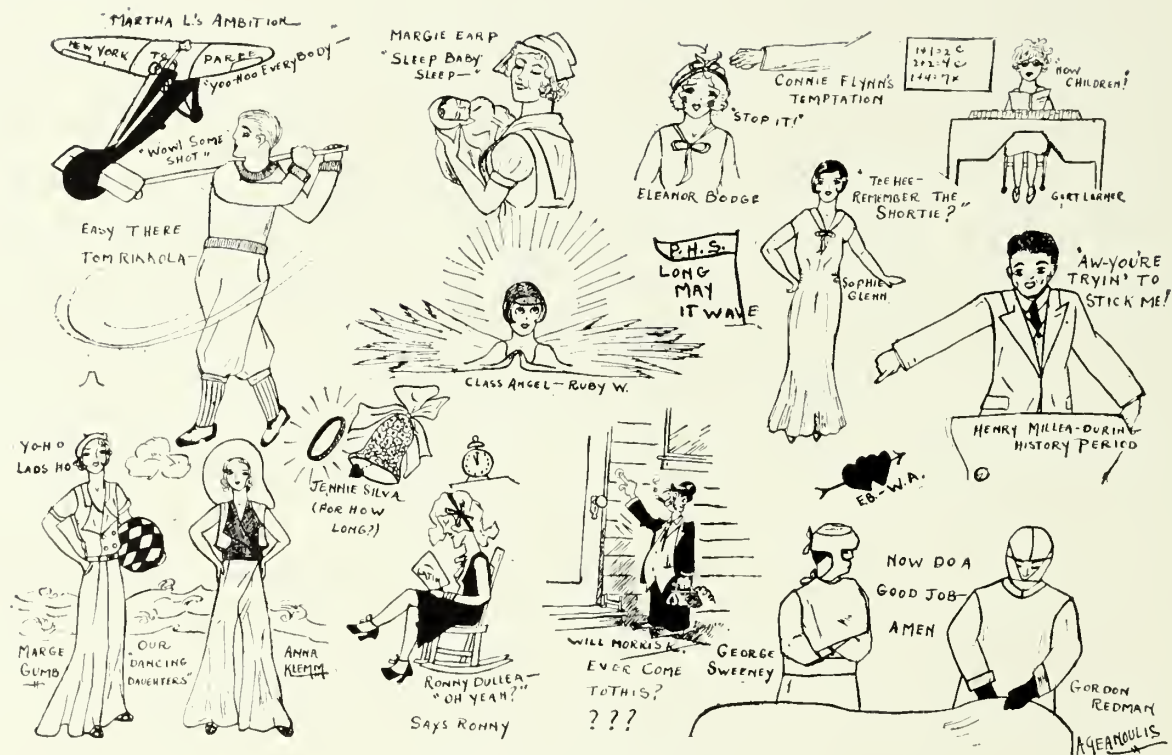 "MARTHA L'S AMBITION
NEW YORK TO PAREE
"YOO-HOO EVERYBODY"
"WOW! SOME
SHOT"
EASY THERE
TOM RIKKOLA—
MARGIE EARP
"SLEEP BABY
SLEEP—"
CONNIE FLYNN'S
TEMPTATION
"STOP IT!"
ELEANOR BODGE
1+1=2 C
2+2=4 C
1+4=7 X
"NOW
CHILDREN!"
GERT LARNER
"TEE HEE—
REMEMBER THE
SHORTIE?"
SOPHIE
GLENN
P.H.S.
LONG
MAY
IT WAVE
"AW-YOU'RE
TRYIN' TO
STICK ME!
HENRY MILLEA-DURING
HISTORY PERIOD
CLASS ANGEL—RUBY W.
YO-HO
LADS HO
MARGE
GUMB
"OUR
DANCING
DAUGHTERS"
ANNA
KLEMM
JENNIE SILVA
(FOR HOW
LONG?)
LATIN
RONNY DULLEA—
"OH YEAH?"
SAYS RONNY
WILL MORRIS K.
EVER COME
TO THIS?
? ? ?
E.B.-W.A.
GEORGE
SWEENEY
NOW DO A
GOOD JOB—
AMEN
GORDON
REDMAN
AGEANOULIS